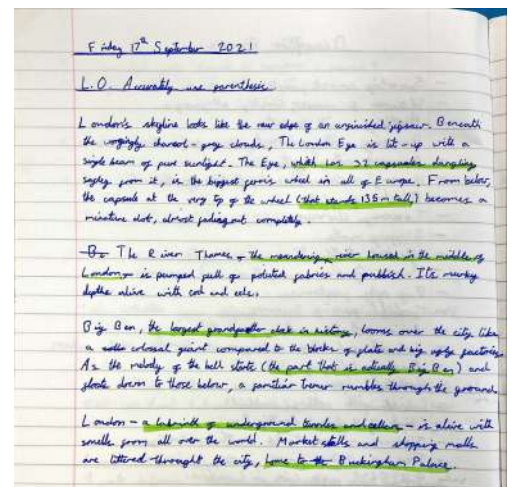 Friday 17th September 2021
L.O. Accurately use parenthesis
London's skyline looks like the new edge of an unfinished jigsaw. Beneath
the charcoal-grey clouds, The London Eye is lit-up with a
single beam of pure sunlight. The Eye, which has 32 capsules dangling
safley from it, is the biggest ferris wheel in all of Europe. From below,
the capsule at the very tip of the wheel (that stands 135m tall) becomes a
minature dot, almost fading out completly.
The River Thames - the meandering river housed in the middle of
London - is pumped full of poluted fabrics and rubbish. Its murky
depths alive with cod and eels.
Big Ben, the largest grandfather clock in history, looms over the city like
a colossal giant compared to the blocks of flats and big ugly factories.
As the melody of the bell starts (the part that is actually Big Ben) and
floats down to those below, a familiar tremor rumbles through the ground.
London - a labrinth of underground tunnles and cellars - is alive with
smells from all over the world. Market stalls and shopping malls
are littered throught the city, home to Buckingham Palace.